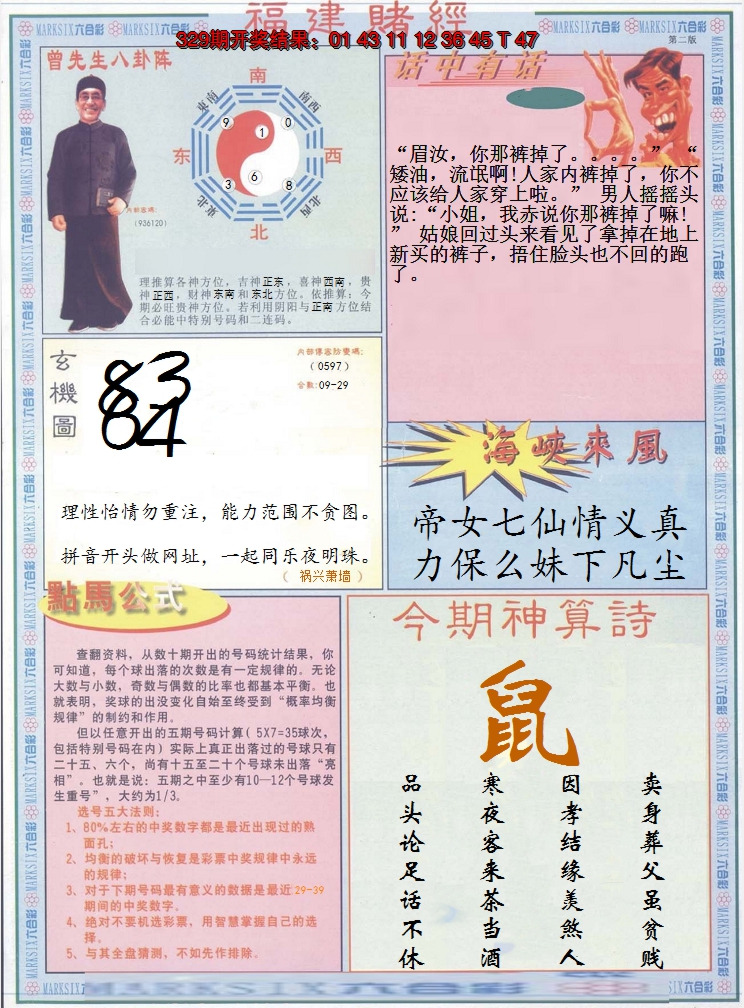 福建賭經
329期开奖结果：01 43 11 12 36 45 T 47
第二版
MARKSIX六合彩
曾先生八卦阵
南
东南
西南
9
1
0
东
西
3
6
8
东北
西北
北
内部密碼:
(936120)
理推算各神方位，吉神正东，喜神西南，贵
神正西，财神东南和东北方位。依推算：今
期必旺贵神方位。若利用阴阳与正南方位结
合必能中特别号码和二连码。
话中有话
“眉汝，你那裤掉了。。。。” “
矮油，流氓啊!人家内裤掉了，你不
应该给人家穿上啦。” 男人摇摇头
说:“小姐，我赤说你那裤掉了嘛!
” 姑娘回过头来看见了拿掉在地上
新买的裤子，捂住脸头也不回的跑
了。
玄機圖
83
64
(0597)
合数:09-29
理性怡情勿重注，能力范围不贪图。
拼音开头做网址，一起同乐夜明珠。
（ 祸兴萧墙 ）
海峽來風
帝女七仙情义真
力保么妹下凡尘
點馬公式
查翻资料，从数十期开出的号码统计结果，你
可知道，每个球出落的次数是有一定规律的。无论
大数与小数，奇数与偶数的比率也都基本平衡。也
就表明，奖球的出没变化自始至终受到“概率均衡
规律”的制约和作用。
但以任意开出的五期号码计算( 5X7=35球次，
包括特别号码在内) 实际上真正出落过的号球只有
二十五、六个，尚有十五至二十个号球未出落“亮
相”。也就是说：五期之中至少有10—12个号球发
生重号”，大约为1/3。
选号五大法则:
1、80%左右的中奖数字都是最近出现过的熟
面孔;
2、均衡的破坏与恢复是彩票中奖规律中永远
的规律;
3、对于下期号码最有意义的数据是最近29-39
期间的中奖数字。
4、绝对不要机选彩票，用智慧掌握自己的选
择。
5、与其全盘猜测，不如先作排除。
今期神算詩
鼠
卖身葬父虽贫贱
因孝结缘羡煞人
寒夜客来茶当酒
品头论足话不休